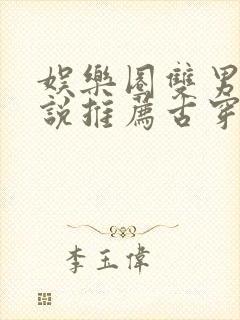 娛樂圈雙男
說推薦古穿
李玉偉